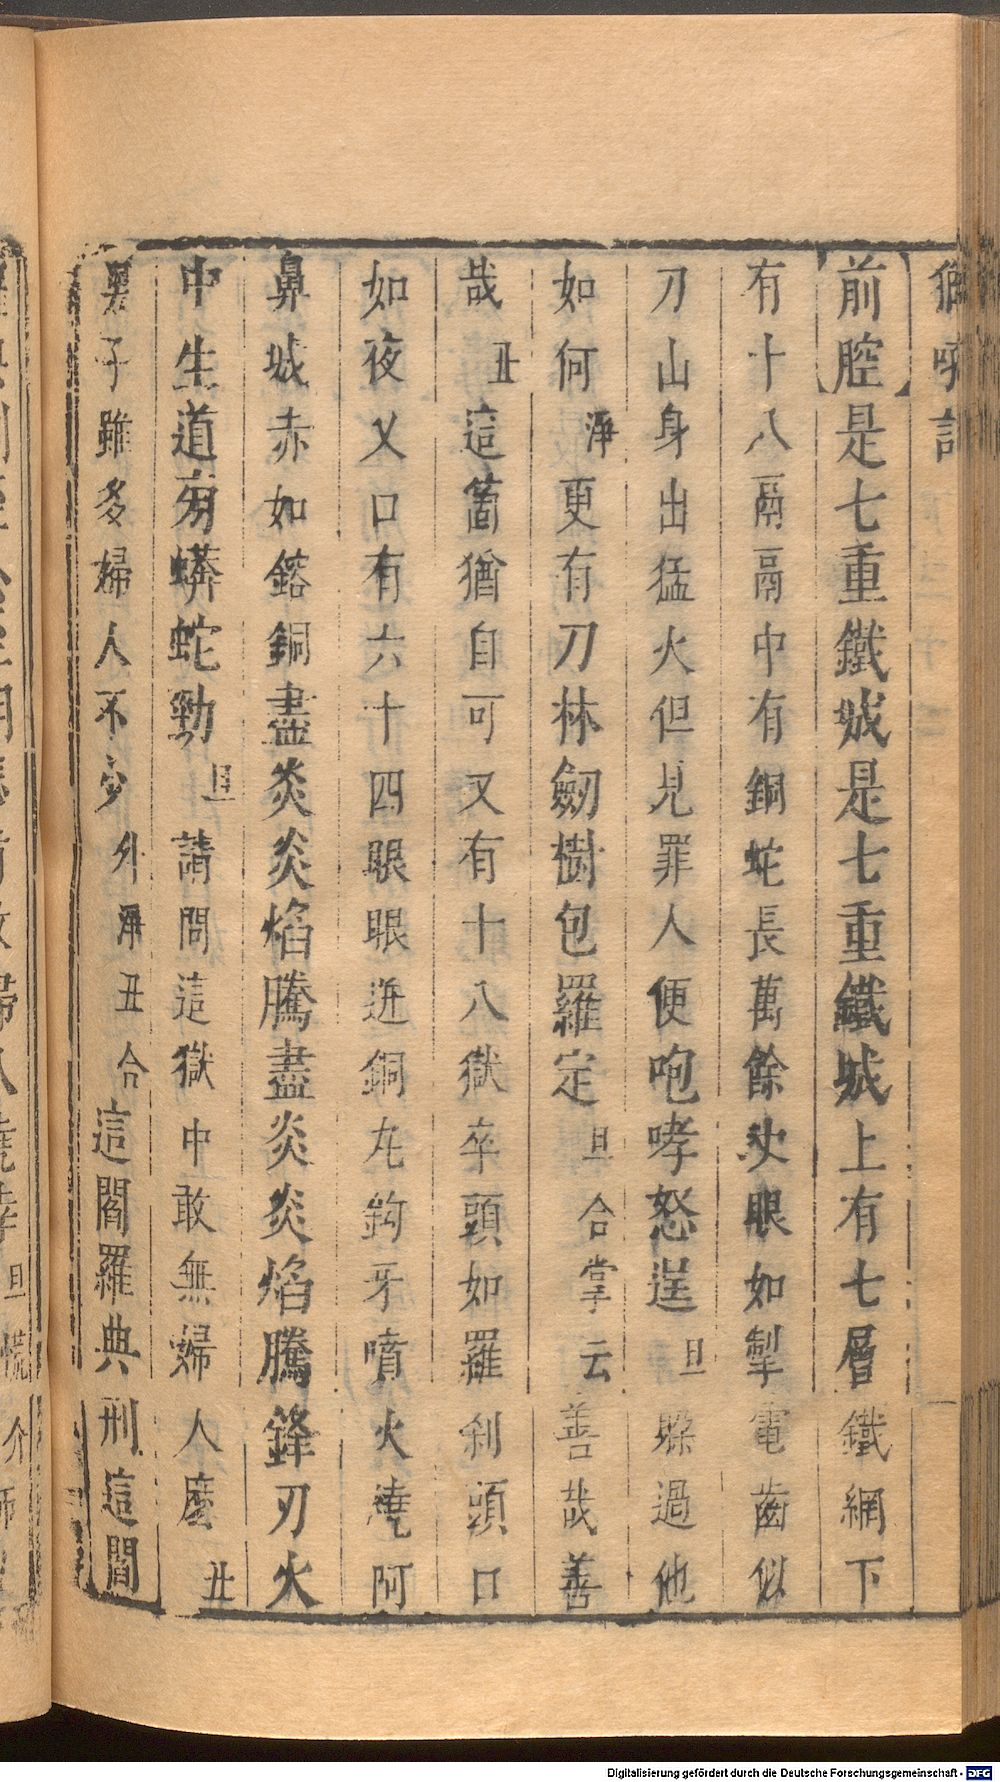 獅吼記
【前腔】是七重鐵城是七重鐵城上有七層鐵網下
有十八鬲鬲中有銅蛇長萬餘丈眼如掣電齒似
刀山身出猛火但見罪人便咆哮怒逞旦躱過他
如何淨更有刀林劒樹包羅定旦合掌云善哉善
哉丑這箇猶自可又有十八獄卒頭如羅刹頭口
如夜叉口有六十四眼眼迸銅丸鈎牙噴火繞阿
鼻城赤如鎔銅盡炎炎焰騰盡炎炎焰騰鋒刃火
中生道旁蟒蛇勁旦請問這獄中敢無婦人麽丑
男子雖多婦人不少外淨丑合這閻羅典刑這閻
Digitalisierung gefördert durch die Deutsche Forschungsgemeinschaft - DFG